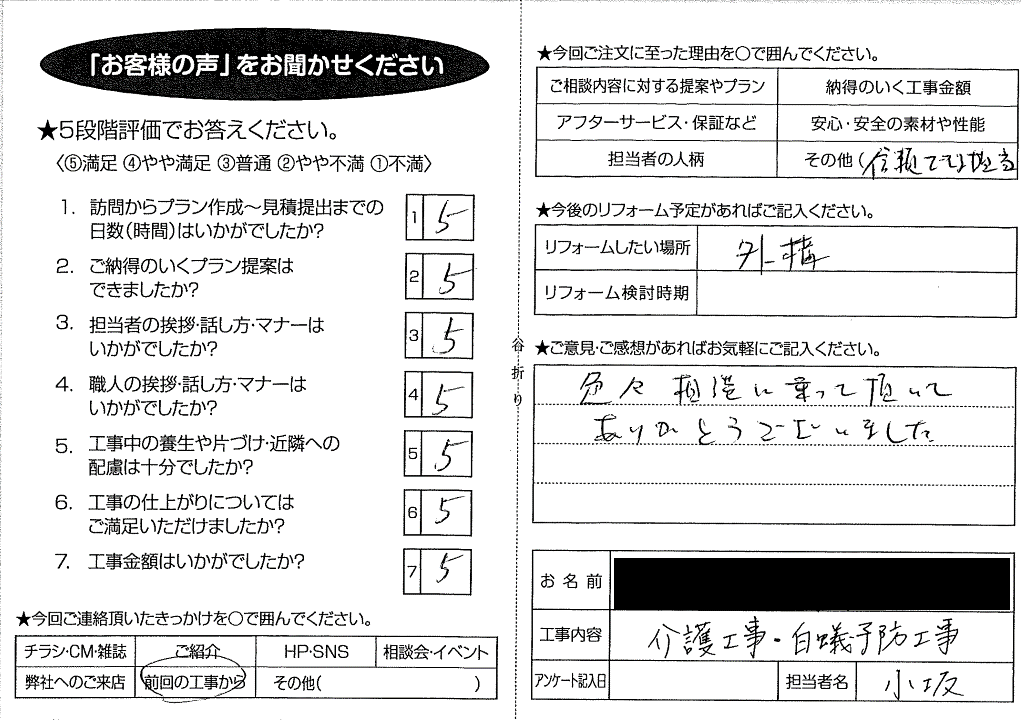 「お客様の声」をお聞かせください
★5段階評価でお答えください。
〈⑤満足 ④やや満足 ③普通 ②やや不満 ①不満〉
1. 訪問からプラン作成～見積提出までの
日数(時間)はいかがでしたか?
1 5
2. ご納得のいくプラン提案は
できましたか?
2 5
3. 担当者の挨拶・話し方・マナーは
いかがでしたか?
3 5
4. 職人の挨拶・話し方・マナーは
いかがでしたか?
4 5
5. 工事中の養生や片づけ・近隣への
配慮は十分でしたか?
5 5
6. 工事の仕上がりについては
ご満足いただけましたか?
6 5
7. 工事金額はいかがでしたか?
7 5
★今回ご連絡頂いたきっかけを○で囲んでください。
チラシ・CM・雑誌 ご紹介 HP・SNS 相談会・イベント
弊社へのご来店 前回の工事から その他( )
谷折り
★今回ご注文に至った理由を○で囲んでください。
ご相談内容に対する提案やプラン 納得のいく工事金額
アフターサービス・保証など 安心・安全の素材や性能
担当者の人柄 その他(信頼できる担当
★今後のリフォーム予定があればご記入ください。
リフォームしたい場所 外構
リフォーム検討時期
★ご意見・ご感想があればお気軽にご記入ください。
色々相談に乗って頂いて
ありがとうございました
お名前
工事内容 介護工事・白蟻予防工事
アンケート記入日 担当者名 小坂